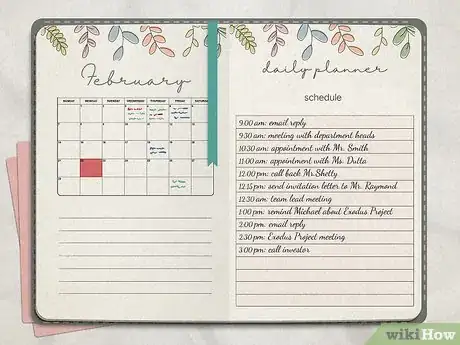 February
SUNDAY MONDAY TUESDAY WEDNESDAY THURSDAY FRIDAY
daily planner
schedule
9:00 am: email reply
9:30 am: meeting with department heads
10:30 am: appointment with Mr. Smith
11:00 am: appointment with Ms. Dutta
12:00 pm: call back Mr.Shetty
12:15 pm: send invitation letter to Mr. Raymond
12:30 am: team lead meeting
1:00 pm: remind Michael about Exodus Project
2:00 pm: email reply
2:30 pm: Exodus Project meeting
3:00 pm: call investor
wikiHow